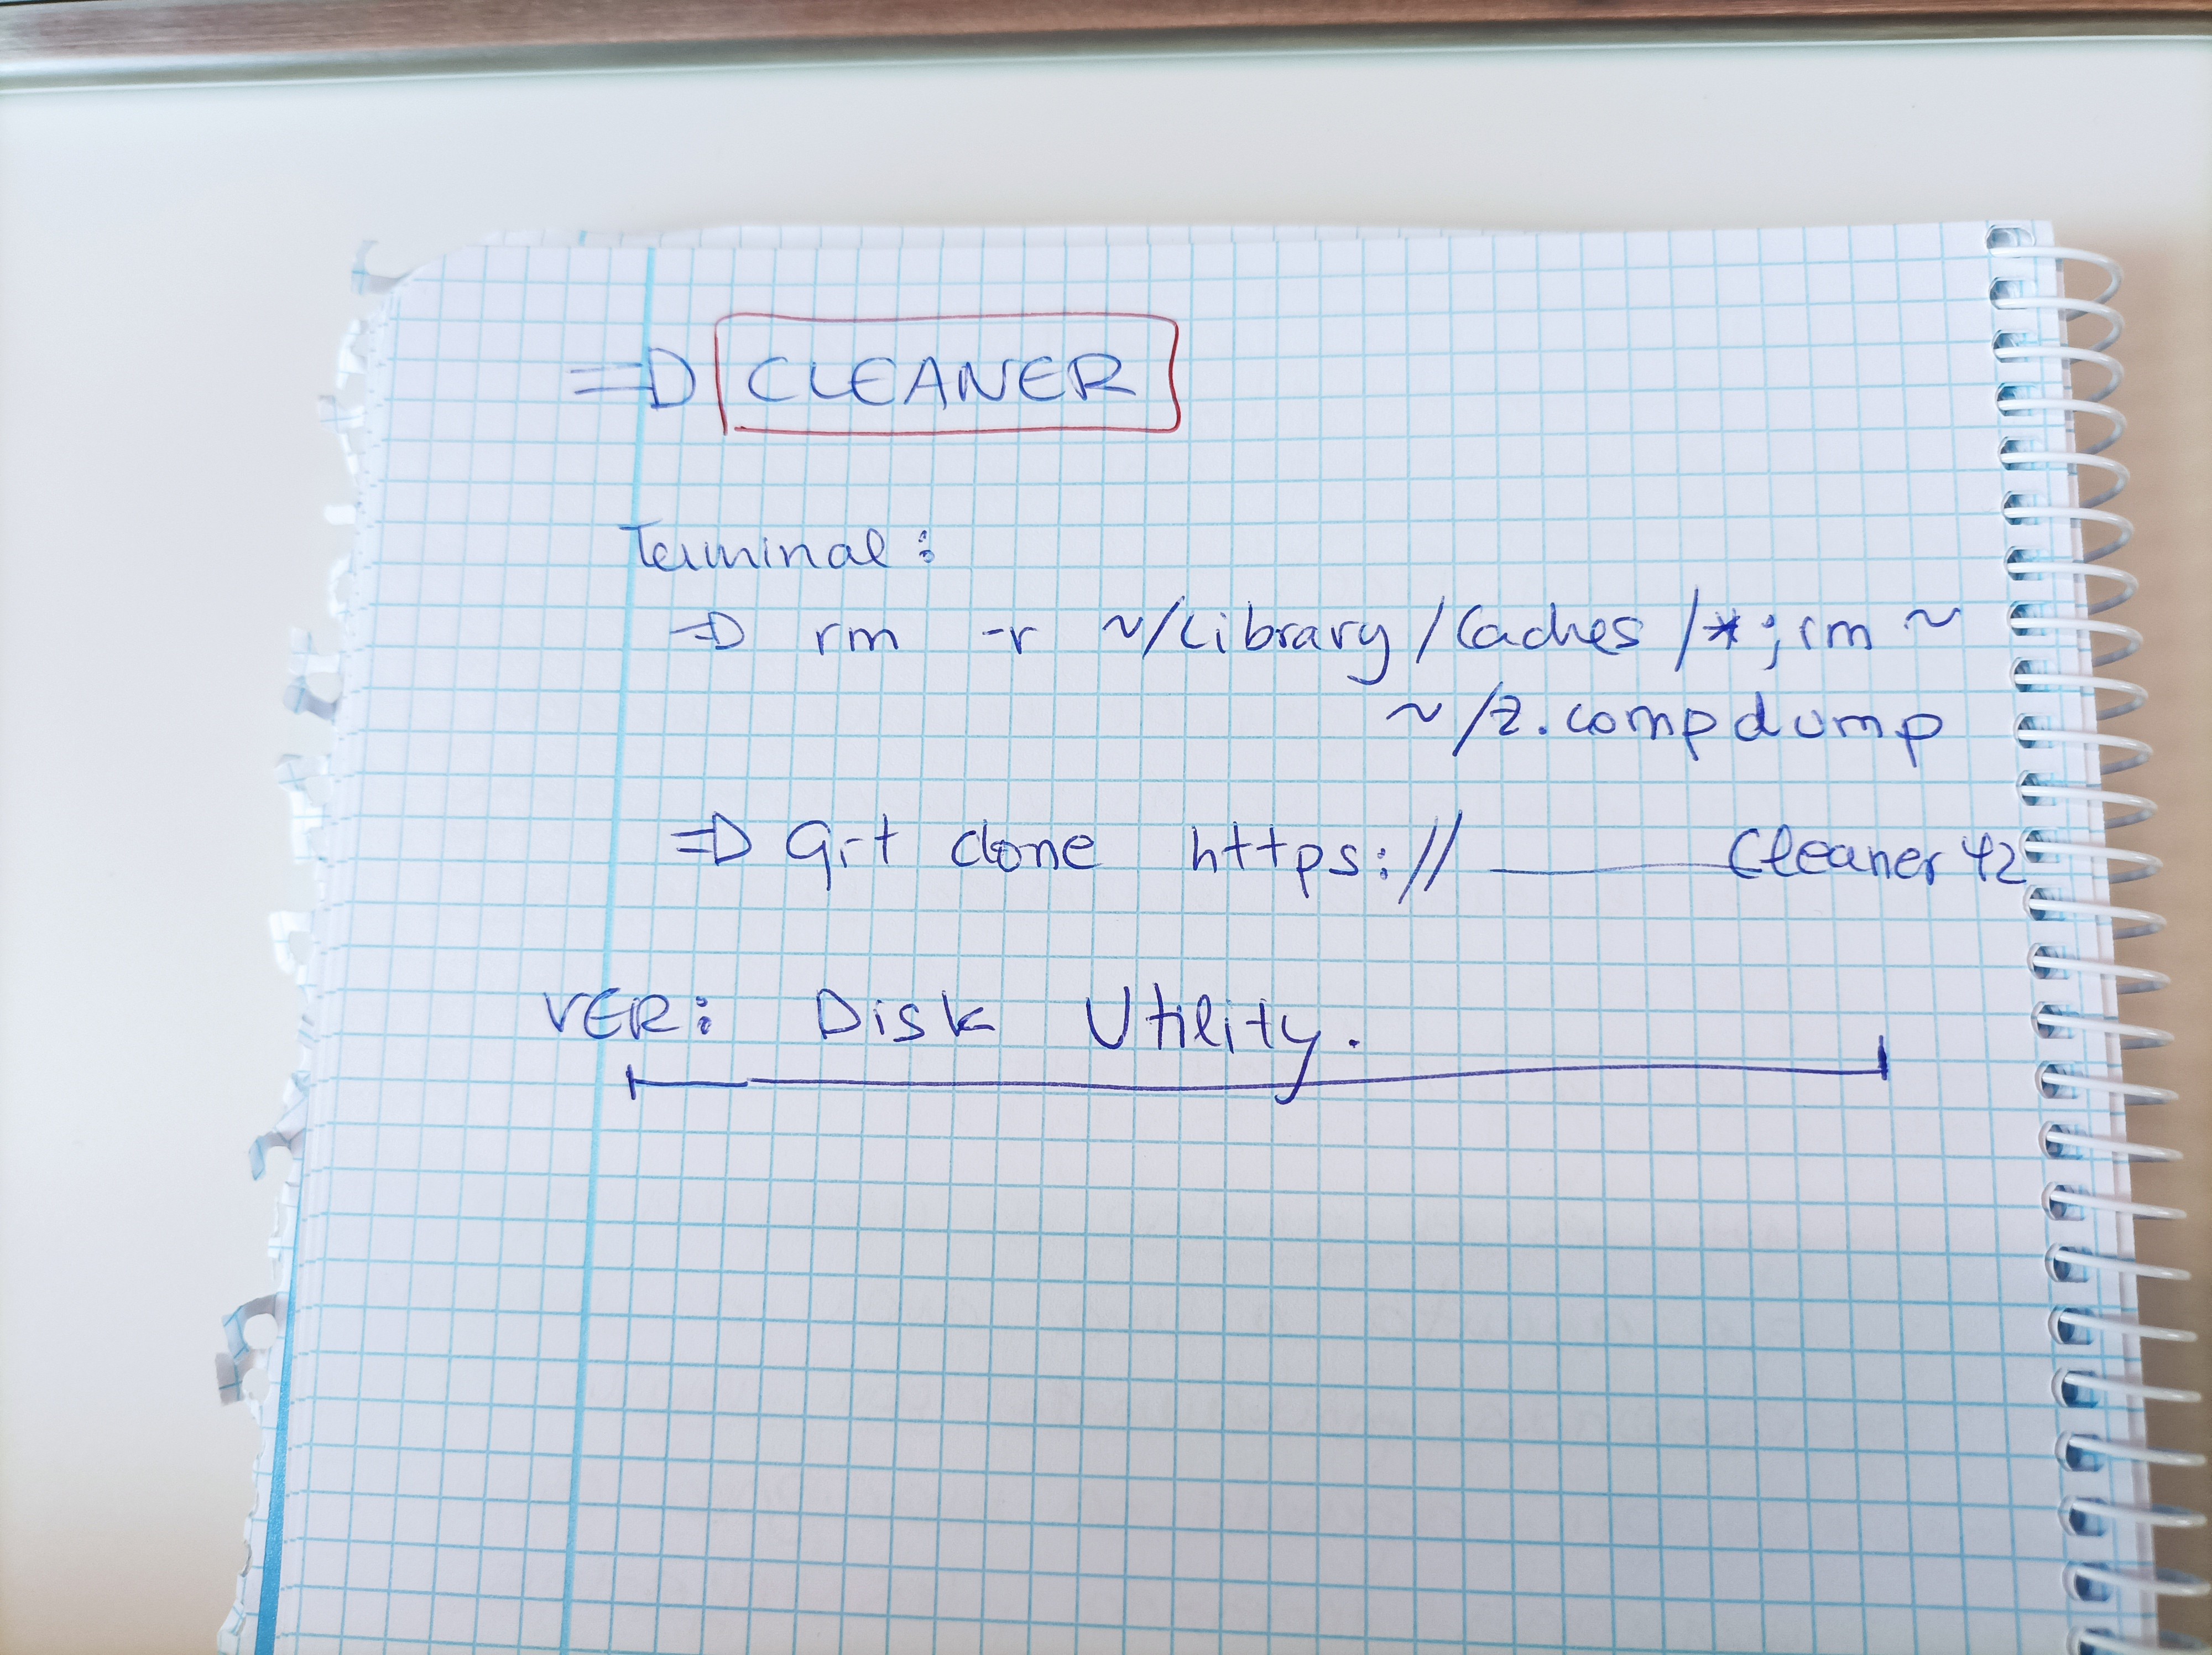 =D CLEANER
Terminal:
=D rm -r ~/Library/Caches/*; rm ~
~/z.compdump
=D Git clone https:// ______ Cleaner 42
VER: Disk Utility.